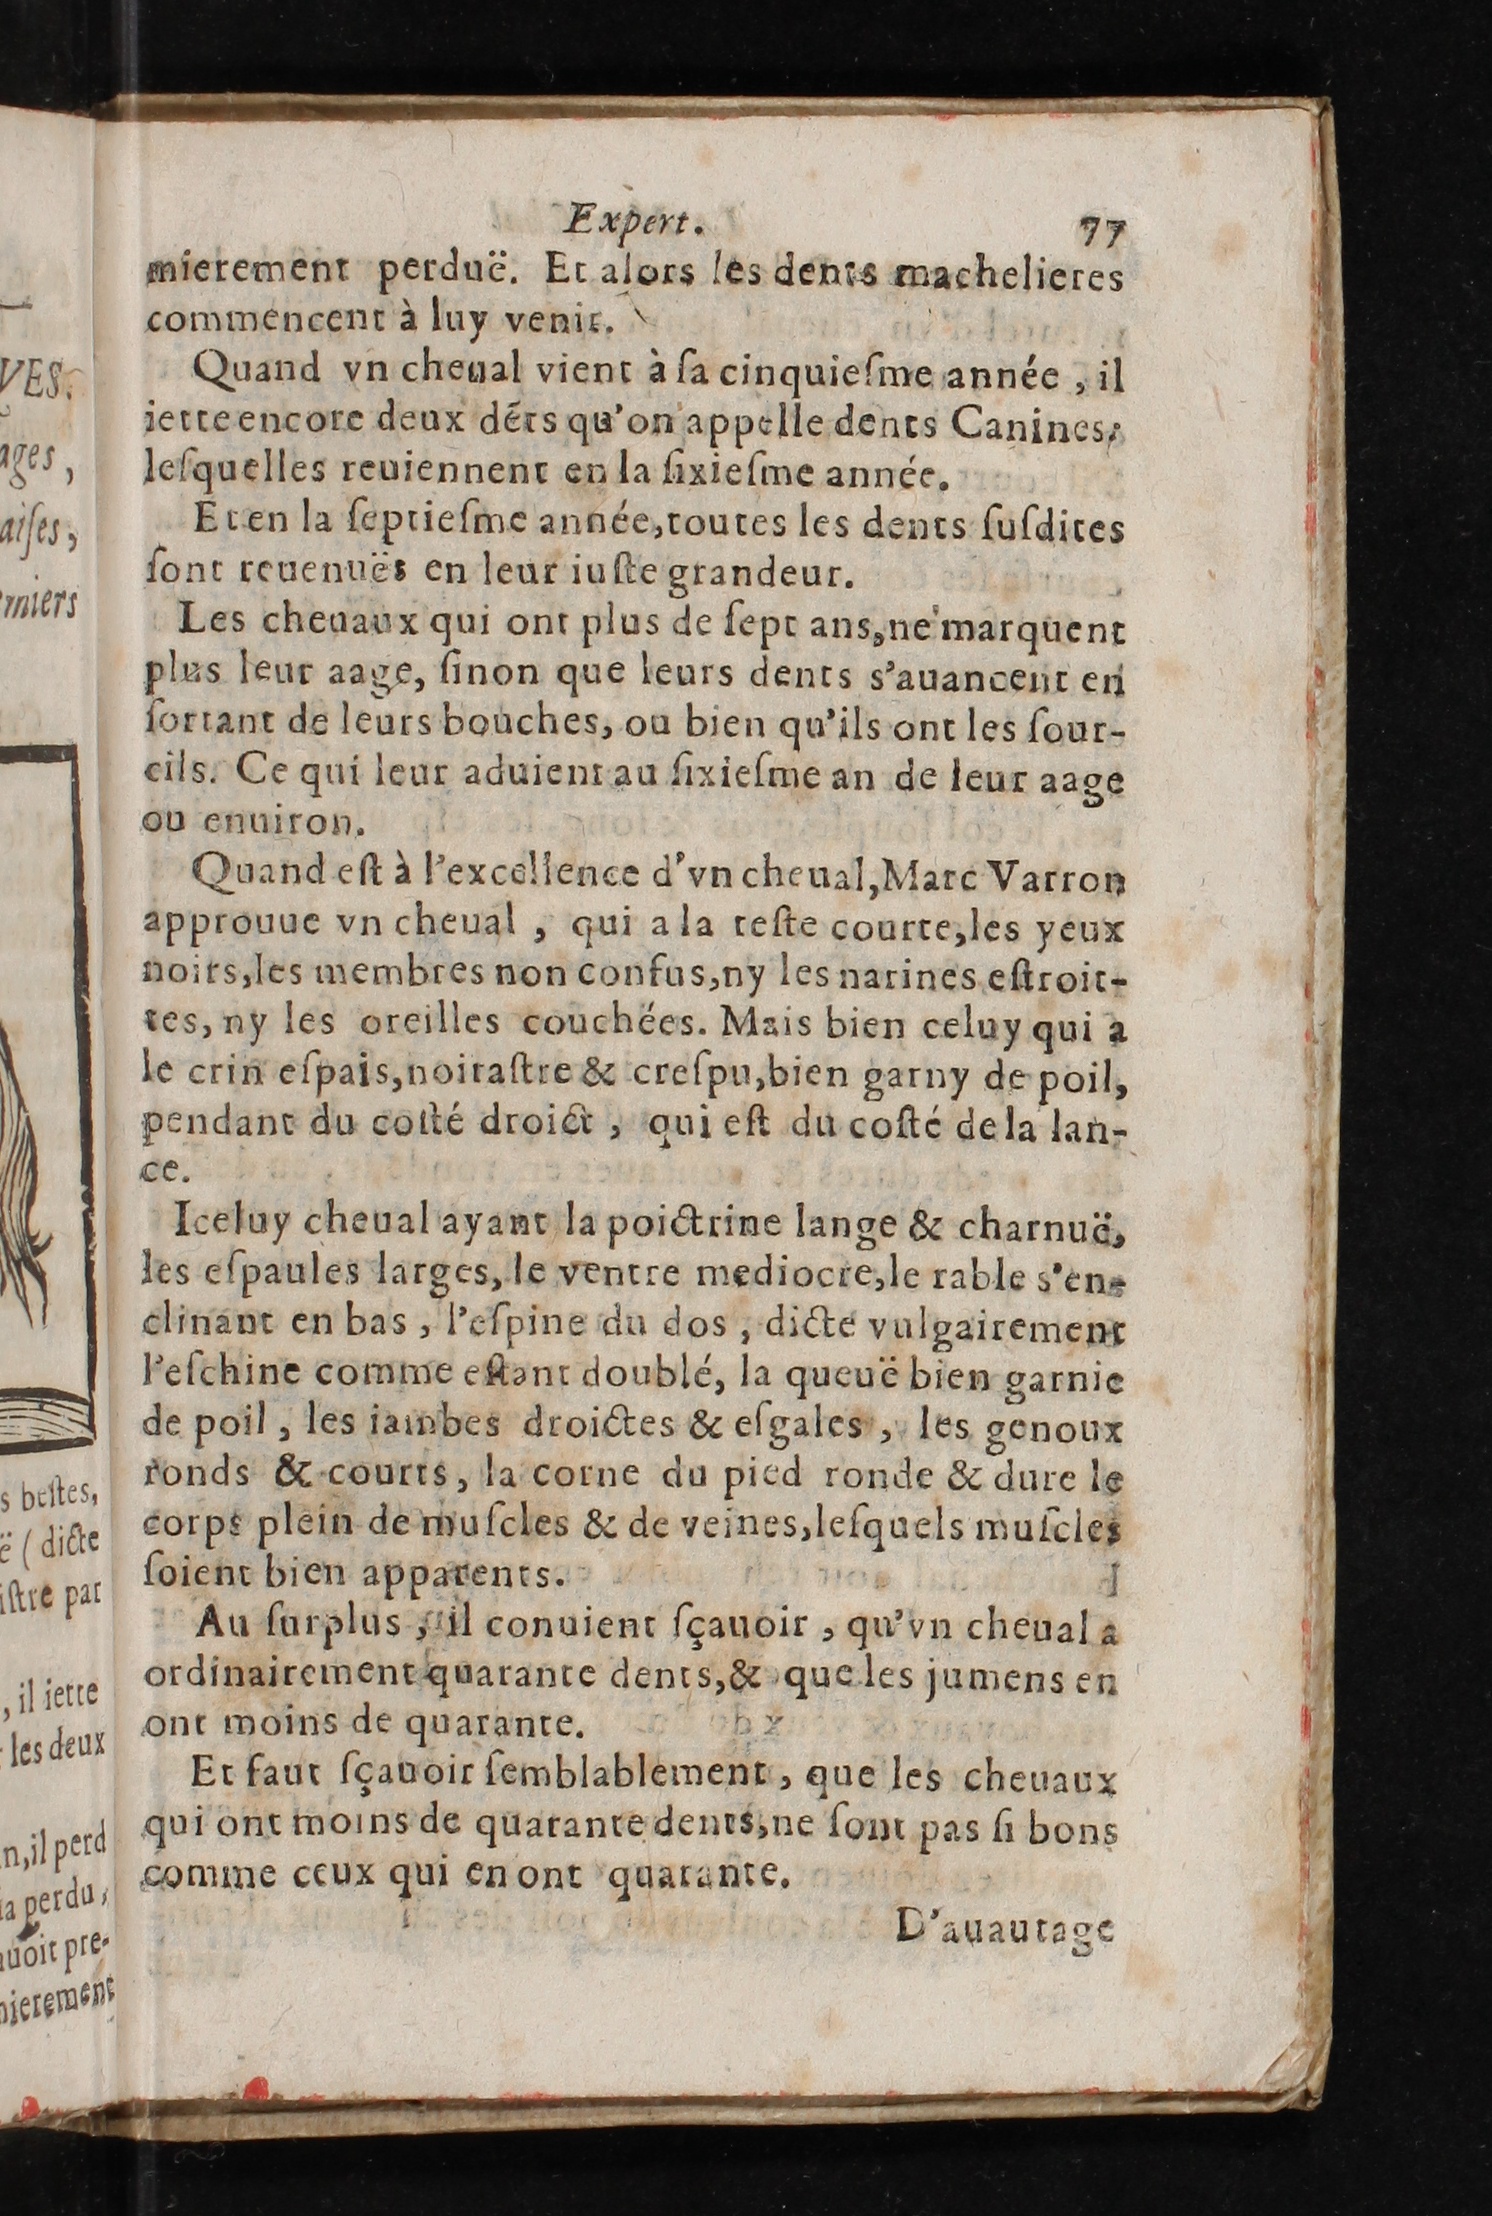 Expert. 77
mierement perduë. Et alors les dents machelieres
commencent à luy venir.
Quand vn cheual vient à ſa cinquieſme année , il
iette encore deux dẽts qu'on appelle dents Canines,
leſquelles reuiennent en la ſixieſme année.
Et en la ſeptieſme année,toutes les dents ſuſdites
ſont reuenuës en leur iuſte grandeur.
Les cheuaux qui ont plus de ſept ans,ne marquent
plus leur aage, ſinon que leurs dents s'auancent en
ſortant de leurs bouches, ou bien qu'ils ont les ſour-
cils. Ce qui leur aduient au ſixieſme an de leur aage
ou enuiron.
Quand eſt à l'excellence d'vn cheual,Marc Varron
approuue vn cheual , qui a la teſte courte,les yeux
noirs,les membres non confus,ny les narines eſtroit-
tes, ny les oreilles couchées. Mais bien celuy qui a
le crin eſpais,noiraſtre & creſpu,bien garny de poil,
pendant du coſté droict , qui eſt du coſté de la lan-
ce.
Iceluy cheual ayant la poictrine lange & charnuë,
les eſpaules larges, le ventre mediocre,le rable s'en-
clinant en bas , l'eſpine du dos , dicte vulgairement
l'eſchine comme eſtant doublé, la queuë bien garnie
de poil , les iambes droictes & eſgales , les genoux
ronds & courts, la corne du pied ronde & dure le
corps plein de muſcles & de veines,leſquels muſcles
ſoient bien apparents.
Au ſurplus , il conuient ſçauoir , qu'vn cheual a
ordinairement quarante dents,& que les jumens en
ont moins de quarante.
Et faut ſçauoir ſemblablement , que les cheuaux
qui ont moins de quarante dents,ne ſont pas ſi bons
comme ceux qui en ont quarante.
D'auautage
VES.
ages ,
aiſes ,
rmiers
s beſtes,
ë ( dicte
iſtre par
, il iette
les deux
n,il perd
la perdu,
auoit pre-
mierement